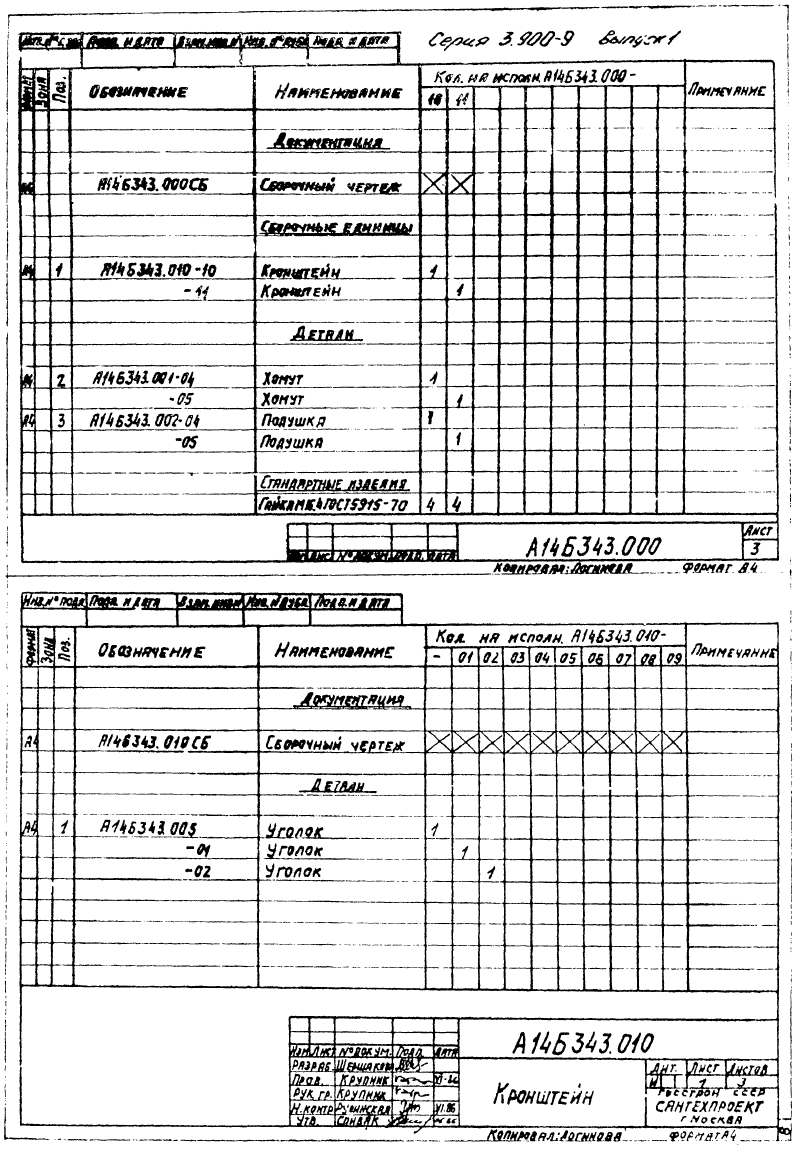 Серия 3.900-9 Выпуск 1
Инв. № подл. Подп. и дата Взам. инв. № Инв. № дубл. Подп. и дата
Формат Зона Поз. Обозначение Наименование Кол. на исполн. А14Б343.000- Примечание
10 11
Документация
А14Б343.000СБ Сборочный чертеж X X
Сборочные единицы
А4 1 А14Б343.010-10 Кронштейн 1
-11 Кронштейн 1
Детали
А4 2 А14Б343.001-04 Хомут 1
-05 Хомут 1
А4 3 А14Б343.002-04 Подушка 1
-05 Подушка 1
Стандартные изделия
Гайка М6.4 ГОСТ 5915-70 4 4
Изм. Лист № докум. Подп. Дата
А14Б343.000
Лист
3
Копировал: Логинова Формат А4
Инв. № подл. Подп. и дата Взам. инв. № Инв. № дубл. Подп. и дата
Формат Зона Поз. Обозначение Наименование Кол. на исполн. А14Б343.010- Примечание
- 01 02 03 04 05 06 07 08 09
Документация
А4 А14Б343.010СБ Сборочный чертеж X X X X X X X X X X
Детали
А4 1 А14Б343.005 Уголок 1
-01 Уголок 1
-02 Уголок 1
А14Б343.010
Изм. Лист № докум. Подп. Дата
Разраб. Шершакова
Пров. Крупник
Рук. гр. Крупник
Н. контр. Рубинская VI.86
Утв. Спивак
Кронштейн
Лит. Лист Листов
И 1 3
Госстрой СССР
Сантехпроект
г. Москва
Копировал: Логинова Формат А4